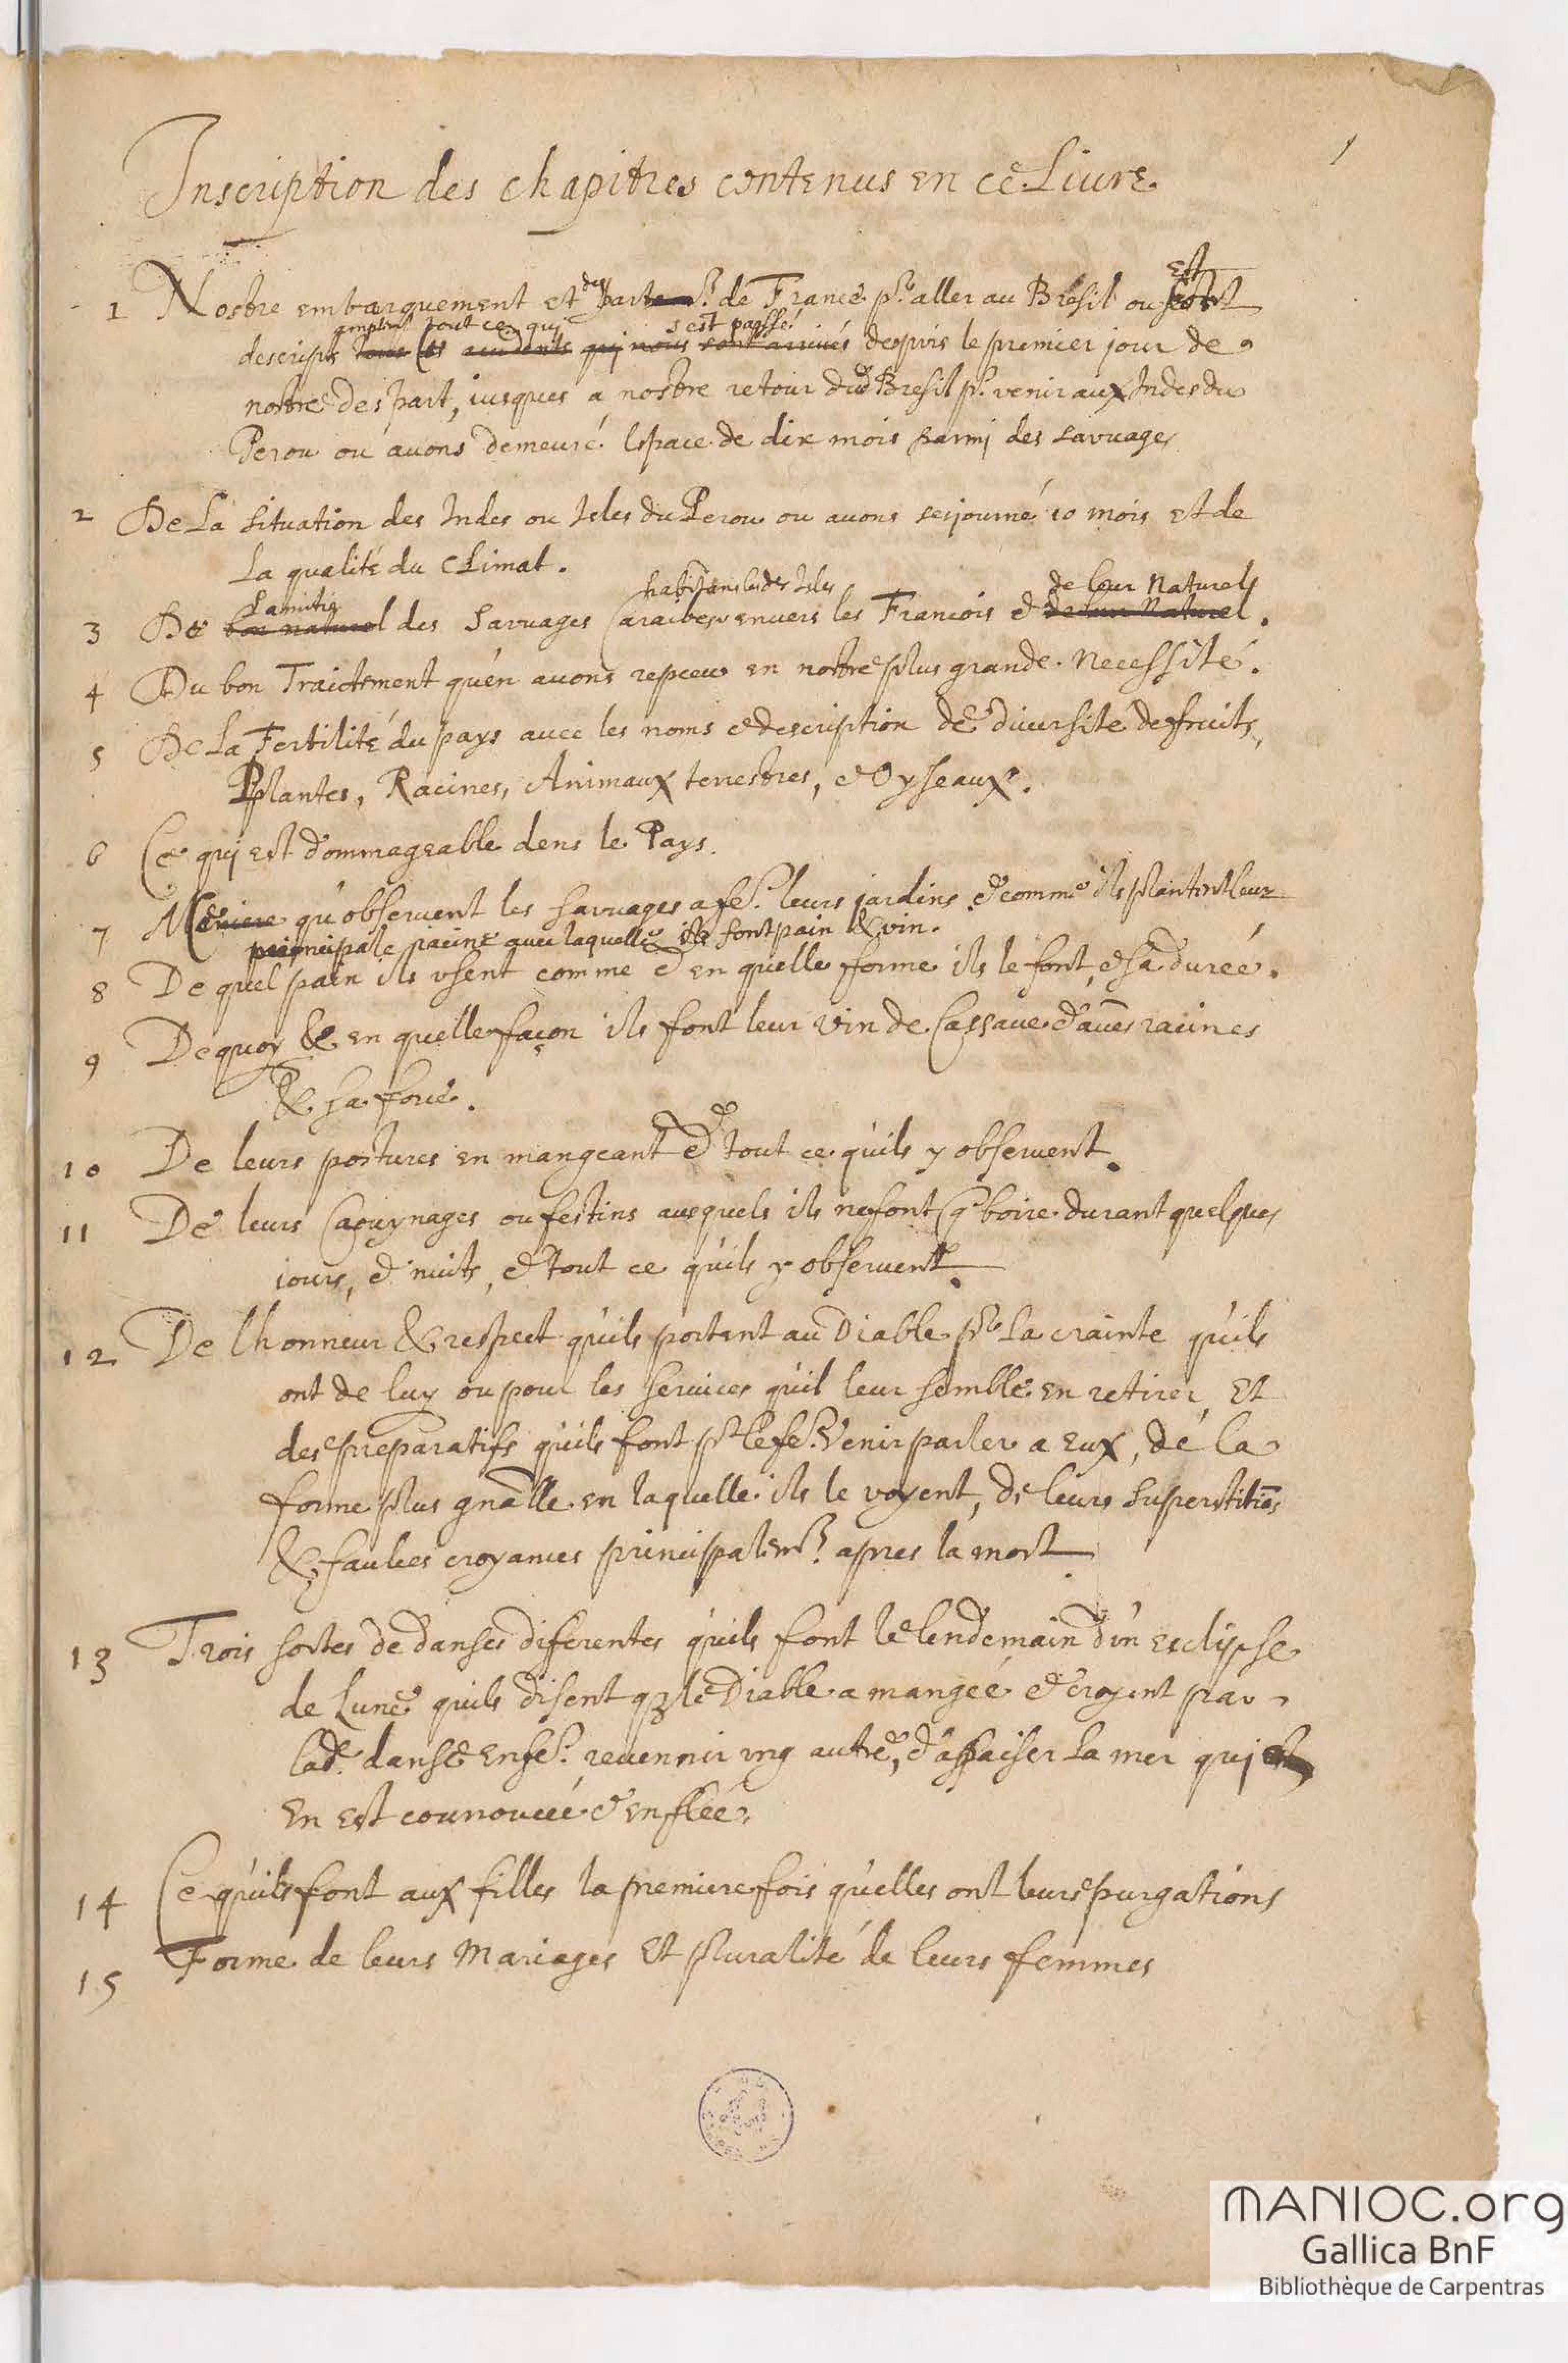 1
Inscription des chapitres contenus en ce Liure
1 Nostre embarquement et des part de France pr aller au Bresil ou est
descript amplemt tout ce qui s'est passé depuis le premier jour de
nostre despart, iusques a nostre retour dud Bresil pr venir aux Indes du
Perou ou auons demeuré lespace de dix mois parmi des sauuages
2 De La situation des Indes ou Isles du Perou ou auons seijourné 10 mois et de
La qualité du Climat.
habitans les des Isles de leur Naturel
3 De Lamitié bon naturel des Sauuages Caraibes enuers les Francois & de leur Naturel.
4 Du bon Traictement qu'en auons repceu en nostre plus grande necessité.
5 De La Fertilité du pays auec les noms & description de diuersité de fruits,
Plantes, Racines, Animaux terrestres, & Oyseaux.
6 Ce qui est dommageable dens le Pays.
7 qu'obseruent les sauuages a fe. leurs jardins & comme ils plantent leur
principale racine auec laquelle ils font pain & vin.
8 De quel pain ils vsent comme & en quelle forme ils le font, & sa durée.
9 De quoy & en quelle façon ils font leur vin de Cassaue & aues racines
& sa force.
10 De leurs postures en mangeant & de tout ce qu'ils y obseruent.
11 De leurs Caouynages ou festins ausquels ils ne font q boire durant quelques
iours, & nuits, & tout ce qu'ils y obseruent.
12 De lhonneur & respect qu'ils portent au Diable pr la crainte qu'ils
ont de luy ou pour les seruices qu'il leur semble en retirer, Et
des preparatifs qu'ils font pr le fe. Venir parler a eux, de la
forme plus gnalle en laquelle ils le voyent, de leurs superstitiōs
& faulces croyances principalemt. apres la mort
13 Trois sortes de danses diferentes qu'ils font le lendemain d'un esclipse
de Lune quils disent q le Diable a mangée & croyent par
lad. danse en fe. reuennir vng autre, & apaiser la mer qui
en est courroucée & enflée.
14 Ce qu'ils font aux filles la premiere fois qu'elles ont leurs purgations
15 Forme de leurs Mariages Et pluralité de leurs femmes
MANIOC.org
Gallica BnF
Bibliothèque de Carpentras